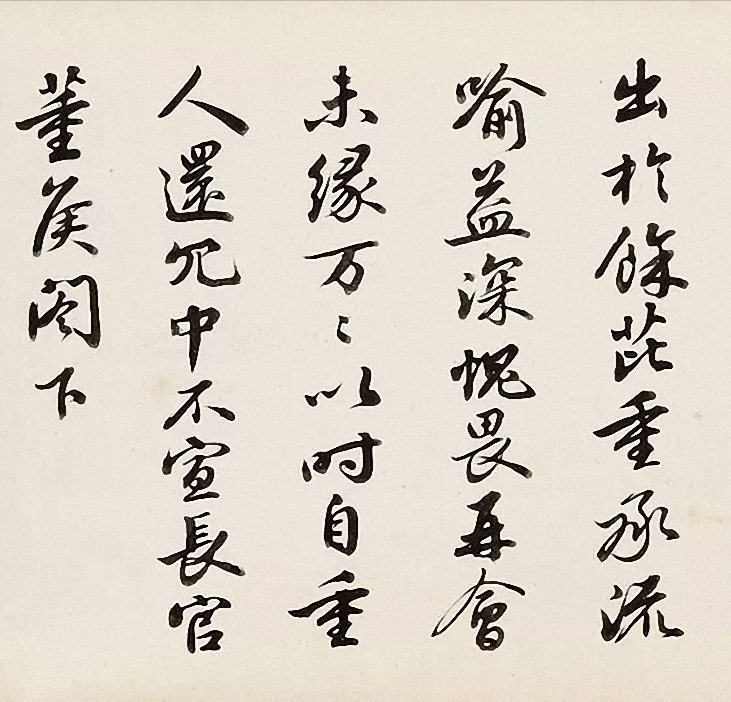 出於餘芘重承流
喻益深愧畏再會
未緣万〻以时自重
人還冗中不宣長官
董矦阁下